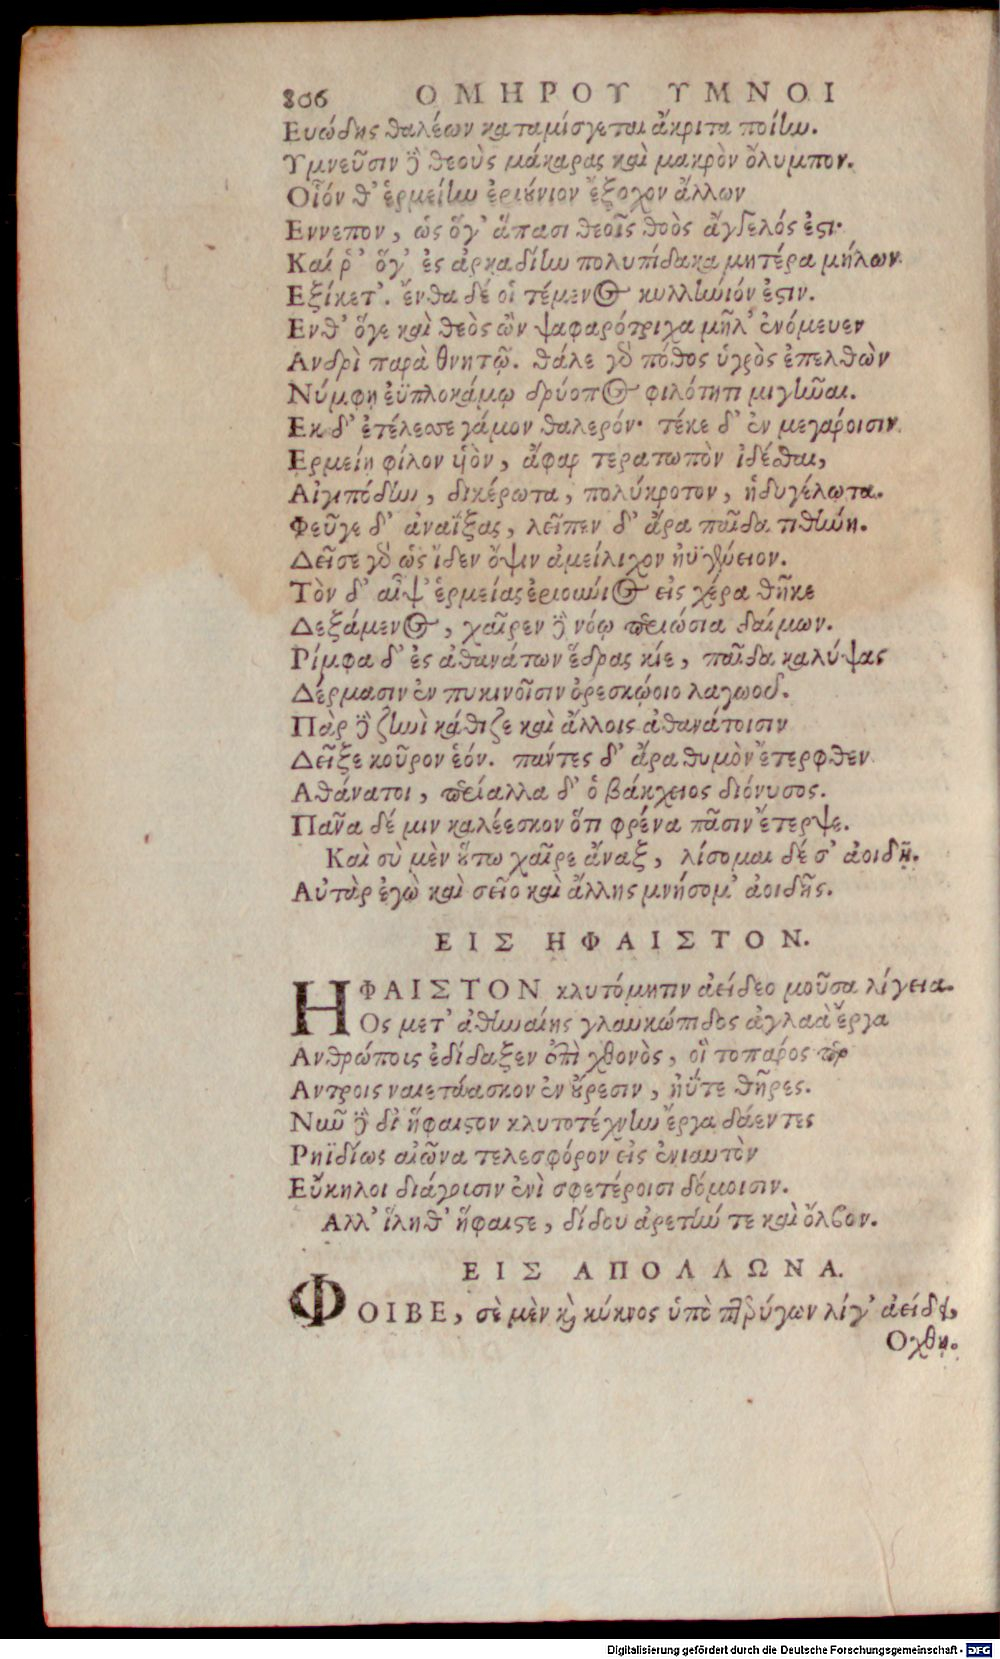 806 ΟΜΗΡΟΥ ΥΜΝΟΙ
Ευώδης θαλέων καταμίσγεται ἄκριτα ποίην.
Υμνεῦσιν δὲ θεοὺς μάκαρας καὶ μακρὸν ὄλυμπον.
Οἷόν θ' ἑρμείην ἐριούνιον ἔξοχον ἄλλων
Εννεπον, ὡς ὅγ' ἅπασι θεοῖς θοὸς ἄγγελός ἐστι·
Καί ῥ' ὅγ' ἐς ἀρκαδίην πολυπίδακα μητέρα μήλων
Εξίκετ'. ἔνθα δέ οἱ τέμενος κυλλήνιόν ἐστιν.
Ενθ' ὅγε καὶ θεὸς ὢν ψαφαρότριχα μῆλ' ἐνόμευεν
Ανδρὶ παρὰ θνητῷ. θάλε γὰρ πόθος ὑγρὸς ἐπελθὼν
Νύμφῃ ἐϋπλοκάμῳ δρύοπος φιλότητι μιγῆναι.
Εκ δ' ἐτέλεσσε γάμον θαλερόν· τέκε δ' ἐν μεγάροισιν
Ερμείῃ φίλον υἱὸν, ἄφαρ τερατωπὸν ἰδέσθαι,
Αἰγιπόδην, δικέρωτα, πολύκροτον, ἡδυγέλωτα.
Φεῦγε δ' ἀναΐξας, λεῖπεν δ' ἄρα παῖδα τιθήνη.
Δεῖσε γὰρ ὡς ἴδεν ὄψιν ἀμείλιχον ἠϋγένειον.
Τὸν δ' αἶψ' ἑρμείας ἐριούνιος εἰς χέρα θῆκε
Δεξάμενος, χαῖρεν δὲ νόῳ περιώσια δαίμων.
Ρίμφα δ' ἐς ἀθανάτων ἕδρας κίε, παῖδα καλύψας
Δέρμασιν ἐν πυκινοῖσιν ὀρεσκῴοιο λαγωοῦ.
Πὰρ δὲ ζηνὶ κάθιζε καὶ ἄλλοις ἀθανάτοισιν
Δεῖξε κοῦρον ἑόν. πάντες δ' ἄρα θυμὸν ἔτερφθεν
Αθάνατοι, περίαλλα δ' ὁ βάκχειος διόνυσος.
Πᾶνα δέ μιν καλέεσκον ὅτι φρένα πᾶσιν ἔτερψε.
Καὶ σὺ μὲν οὕτω χαῖρε ἄναξ, λίσομαι δέ σ' ἀοιδῇ.
Αὐτὰρ ἐγὼ καὶ σεῖο καὶ ἄλλης μνήσομ' ἀοιδῆς.
ΕΙΣ ΗΦΑΙΣΤΟΝ.
ΗΦΑΙΣΤΟΝ κλυτόμητιν ἀείδεο μοῦσα λίγεια.
Ος μετ' ἀθηναίης γλαυκώπιδος ἀγλαὰ ἔργα
Ανθρώποις ἐδίδαξεν ἐπὶ χθονὸς, οἳ τοπάρος περ
Αντροις ναιετάασκον ἐν οὔρεσιν, ἠΰτε θῆρες.
Νῦν δὲ δι' ἥφαιστον κλυτοτέχνην ἔργα δάεντες
Ρηϊδίως αἰῶνα τελεσφόρον εἰς ἐνιαυτὸν
Εὔκηλοι διάγουσιν ἐνὶ σφετέροισι δόμοισιν.
Αλλ' ἵληθ' ἥφαιστε, δίδου ἀρετήν τε καὶ ὄλβον.
ΕΙΣ ΑΠΟΛΛΩΝΑ.
ΦΟΙΒΕ, σὲ μὲν καὶ κύκνος ὑπὸ πτερύγων λίγ' ἀείδει,
Οχθῃ.
Digitalisierung gefördert durch die Deutsche Forschungsgemeinschaft - DFG